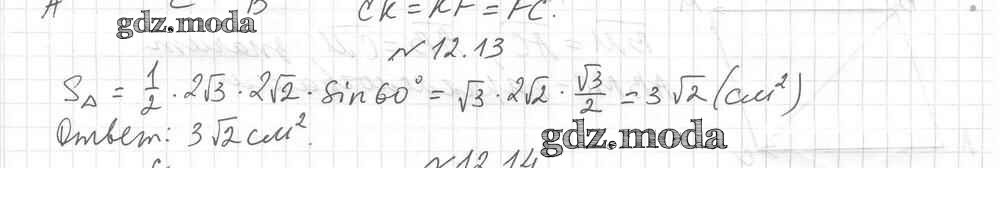 A C B CK = KF = FC.
gdz.moda
№ 12.13
S△ = 1/2 · 2√3 · 2√2 · sin 60° = √3 · 2√2 · √3/2 = 3√2 (см²)
Ответ: 3√2 см².
gdz.moda
№ 12.14